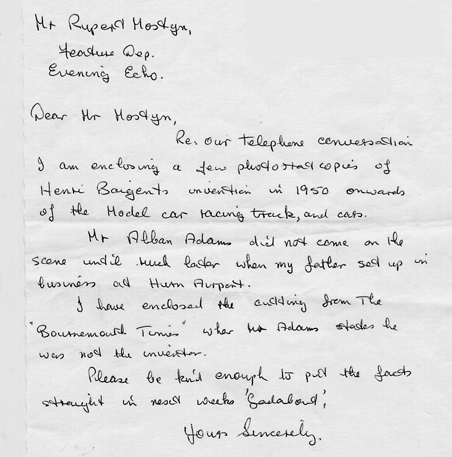 Mr Rupert Mostyn,
Feature Dep.
Evening Echo.
Dear Mr Mostyn,
Re, our telephone conversation
I am enclosing a few photostat copies of
Henri Baigents invention in 1950 onwards
of the Model car racing track, and cars.
Mr Alban Adams did not come on the
scene until much later when my father set up in
business at Hurn Airport.
I have enclosed the cutting from The
"Bournemouth Times" wher Mr Adams states he
was not the inventor.
Please be kind enough to put the facts
straight in next weeks 'Gadabout',
Yours Sincerely.